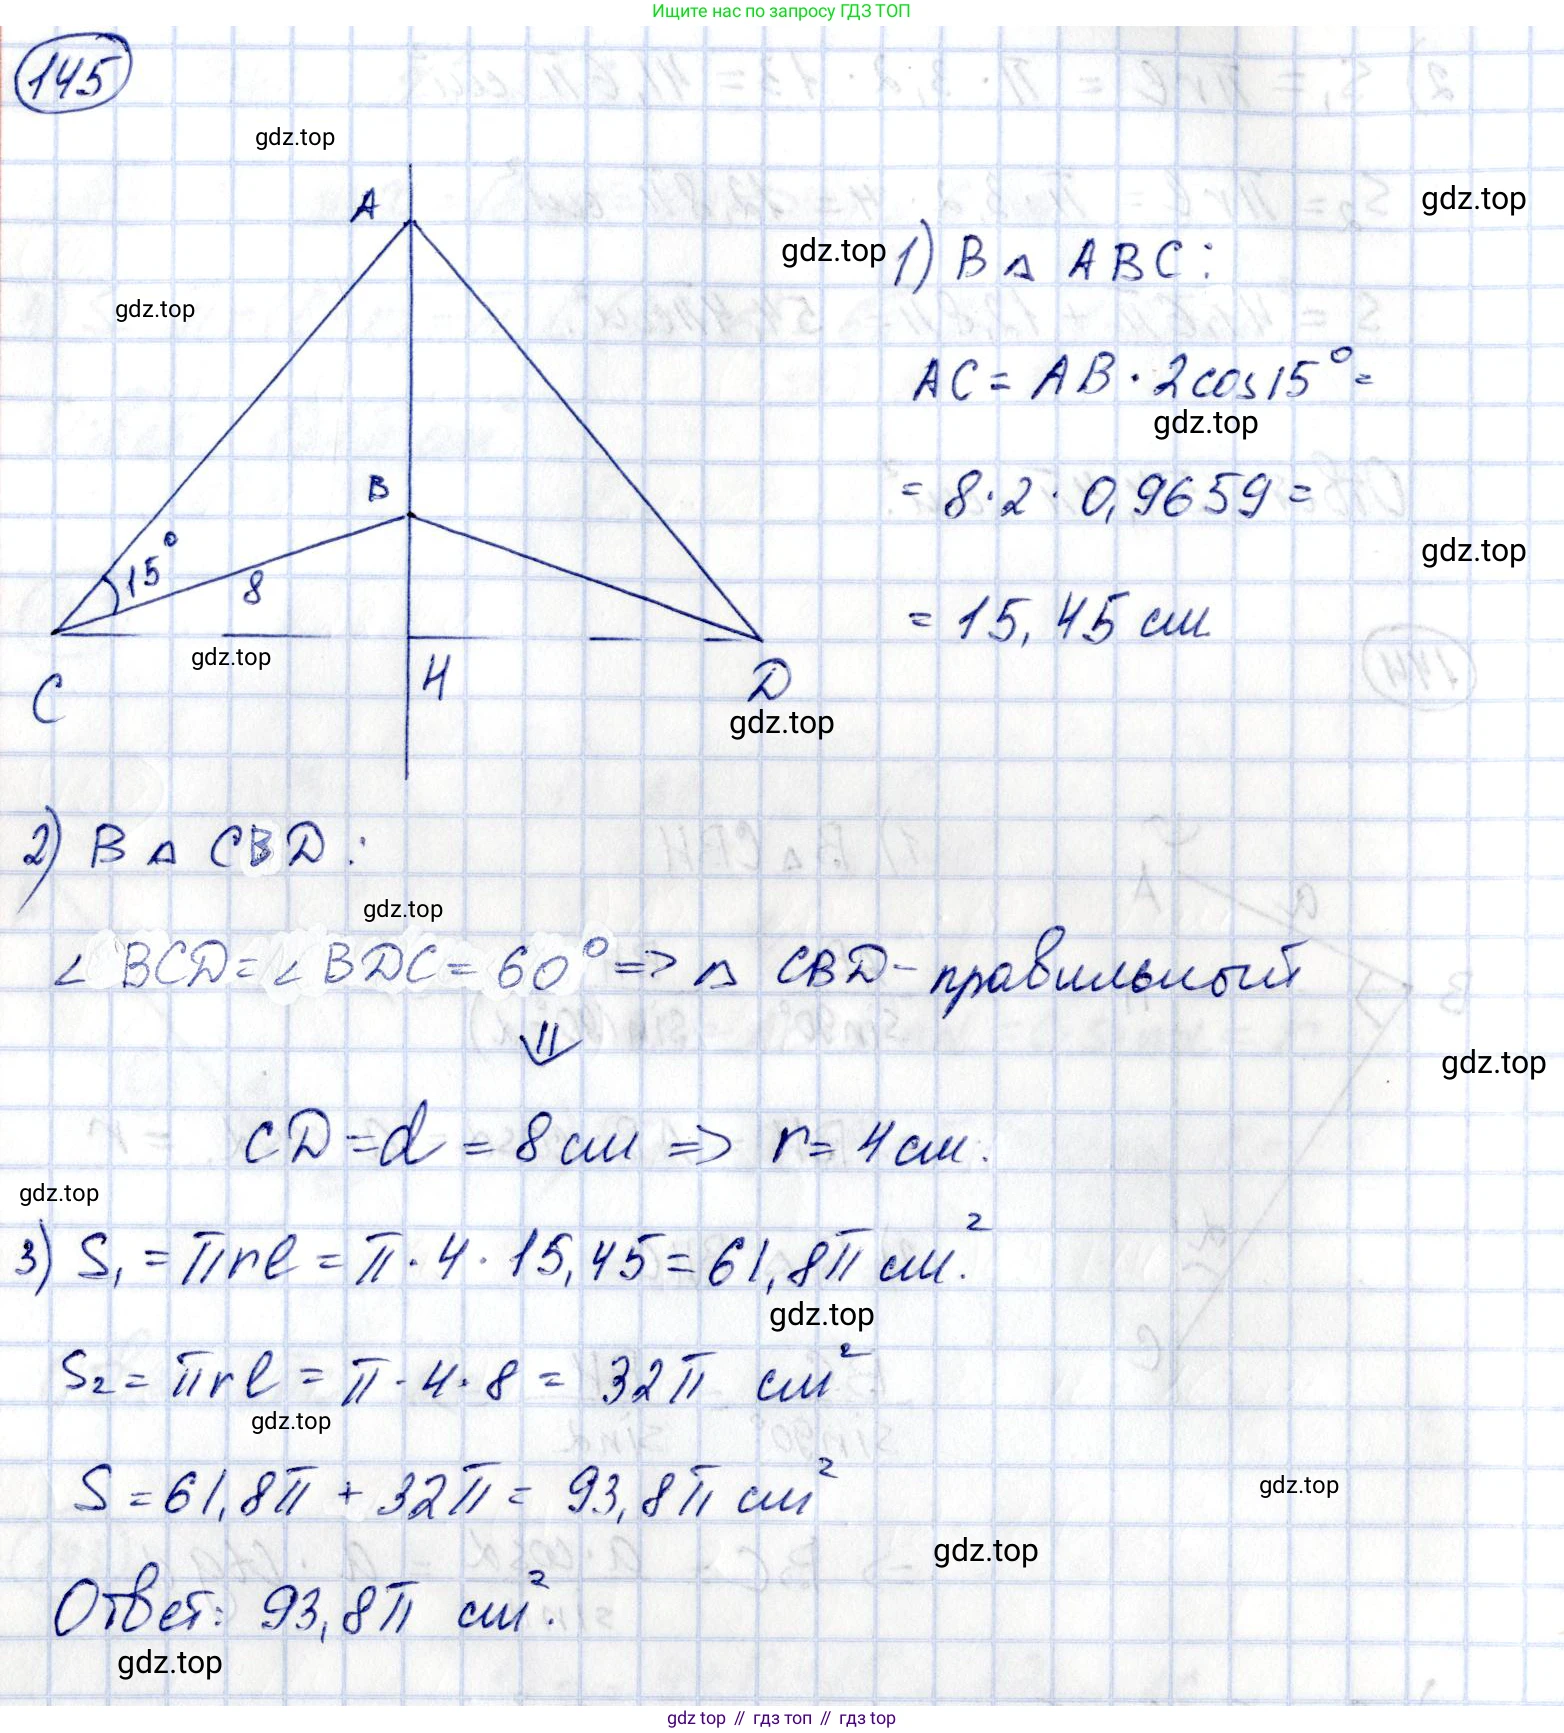 Ищите нас по запросу ГДЗ ТОП
145
gdz.top
gdz.top
A
gdz.top
gdz.top
1) В △ ABC:
gdz.top
AC = AB · 2cos15° =
gdz.top
B
= 8 · 2 · 0,9659 =
15°
8
gdz.top
= 15,45 см
gdz.top
C
H
D
gdz.top
2) В △ CBD:
gdz.top
∠ BCD = ∠ BDC = 60° => △ CBD - правильный
⇓
gdz.top
CD = d = 8 см => r = 4 см.
gdz.top
3) S₁ = πrl = π · 4 · 15,45 = 61,8π см².
gdz.top
S₂ = πrl = π · 4 · 8 = 32π см²
gdz.top
S = 61,8π + 32π = 93,8π см²
gdz.top
gdz.top
Ответ: 93,8π см².
gdz.top
gdz top // гдз топ // гдз top